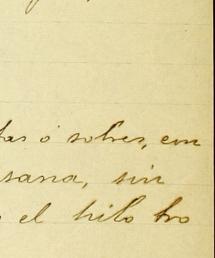 tas ó sobres, con
sana, sin
el hilo tro